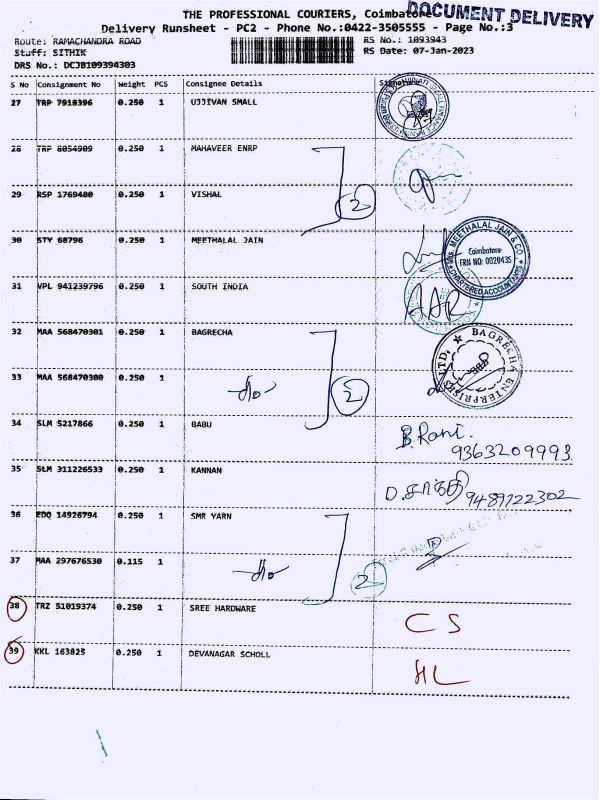 THE PROFESSIONAL COURIERS, Coimbatore
DOCUMENT DELIVERY
Delivery Runsheet - PC2 - Phone No.:0422-3505555 - Page No.:3
Route: RAMACHANDRA ROAD
RS No.: 1093943
Stuff: SITHIK
RS Date: 07-Jan-2023
DRS No.: DCJB109394303
S No Consignment No Weight PCS Consignee Details Signature
27 TRP 7918396 0.250 1 UJJIVAN SMALL
28 TRP 8054909 0.250 1 MAHAVEER ENRP
2
29 RSP 1769480 0.250 1 VISHAL
30 STY 68796 0.250 1 MEETHALAL JAIN
MEETHALAL JAIN & CO.
Coimbatore
FRN NO: 0020435
CHARTERED ACCOUNTANTS
31 VPL 941239796 0.250 1 SOUTH INDIA
AAR
32 MAA 568470301 0.250 1 BAGRECHA
BAGRECHA ENTERPRISES LTD.
33 MAA 568470300 0.250 1
2
34 SLM 5217866 0.250 1 BABU
B.Rani.
9363209993
35 SLM 311226533 0.250 1 KANNAN
D.சாந்தி 9489722302
36 EDQ 14926794 0.250 1 SMR YARN
37 MAA 297676530 0.115 1
2
38 TRZ 51019374 0.250 1 SREE HARDWARE
CS
39 KKL 163825 0.250 1 DEVANAGAR SCHOLL
HL